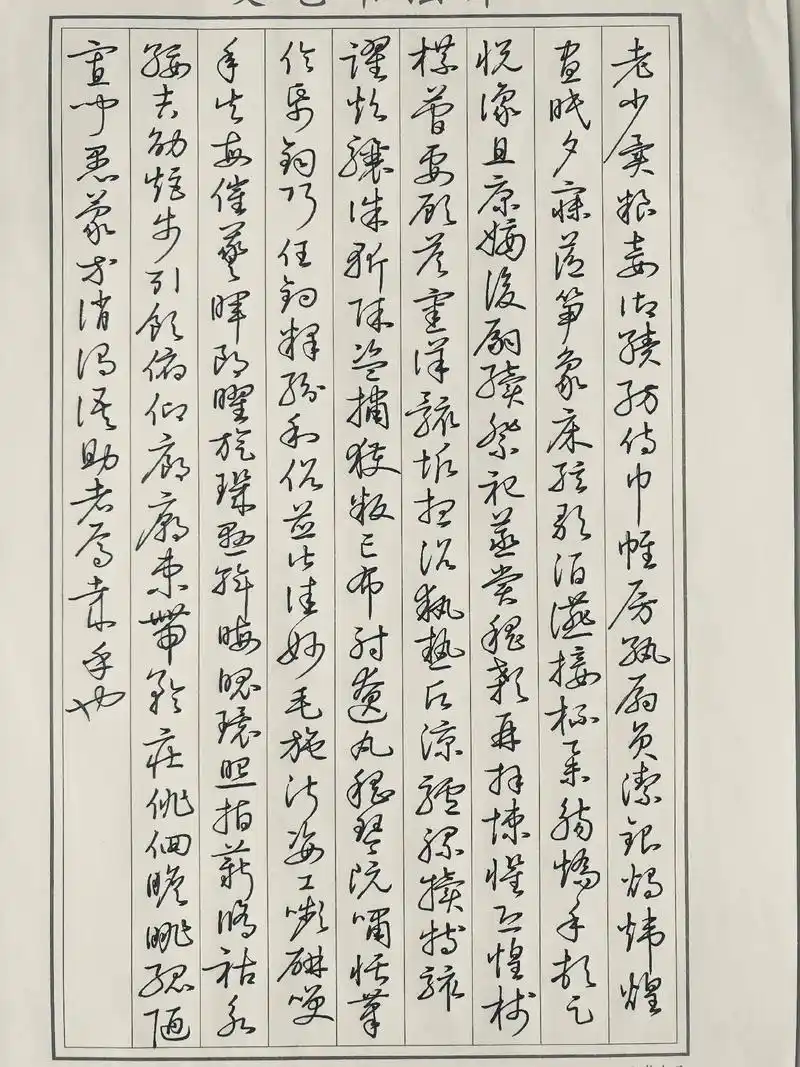 老少異糧妾御績紡侍巾帷房紈扇員潔銀燭煒煌
晝眠夕寐藍筍象床弦歌酒讌接杯舉觴矯手頓足
悅豫且康嫡後嗣續祭祀蒸嘗稽顙再拜悚懼恐惶牋
牒簡要顧答審詳骸垢想浴執熱願涼驢騾犢特駭
躍超驤誅斬賊盜捕獲叛亡布射遼丸嵇琴阮嘯恬筆
倫紙鈞巧任釣釋紛利俗並皆佳妙毛施淑姿工嚬妍笑
年矢每催羲暉朗曜旋璣懸斡晦魄環照指薪修祜永
綏吉劭矩步引領俯仰廊廟束帶矜莊徘徊瞻眺孤陋
寡聞愚蒙等誚謂語助者焉哉乎也